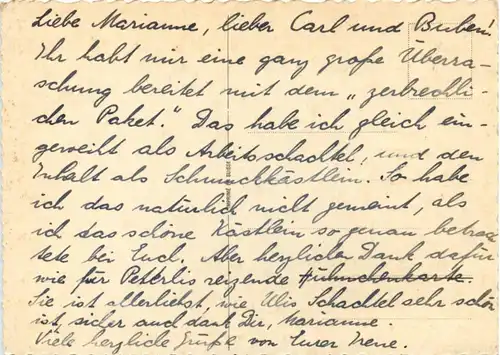 Liebe Marianne, lieber Carl und Buben!
Ihr habt mir eine ganz große Überra-
schung bereitet mit dem „zerbrechli-
chen Paket." Das habe ich gleich ein-
geweiht als Arbeitsschachtel, und den
Inhalt als Schmuckkästlein. So habe
ich das natürlich nicht gemeint, als
ich das schöne Kästlein so genau betrach
tete bei Euch. Aber herzlichen Dank dafür
wie für Peterlis reizende Hühnchenkarte.
Sie ist allerliebst, wie Ulis Schachtel sehr schön
ist, sicher auch dank Dir, Marianne.
Viele herzliche Grüße von Eurer Irene.